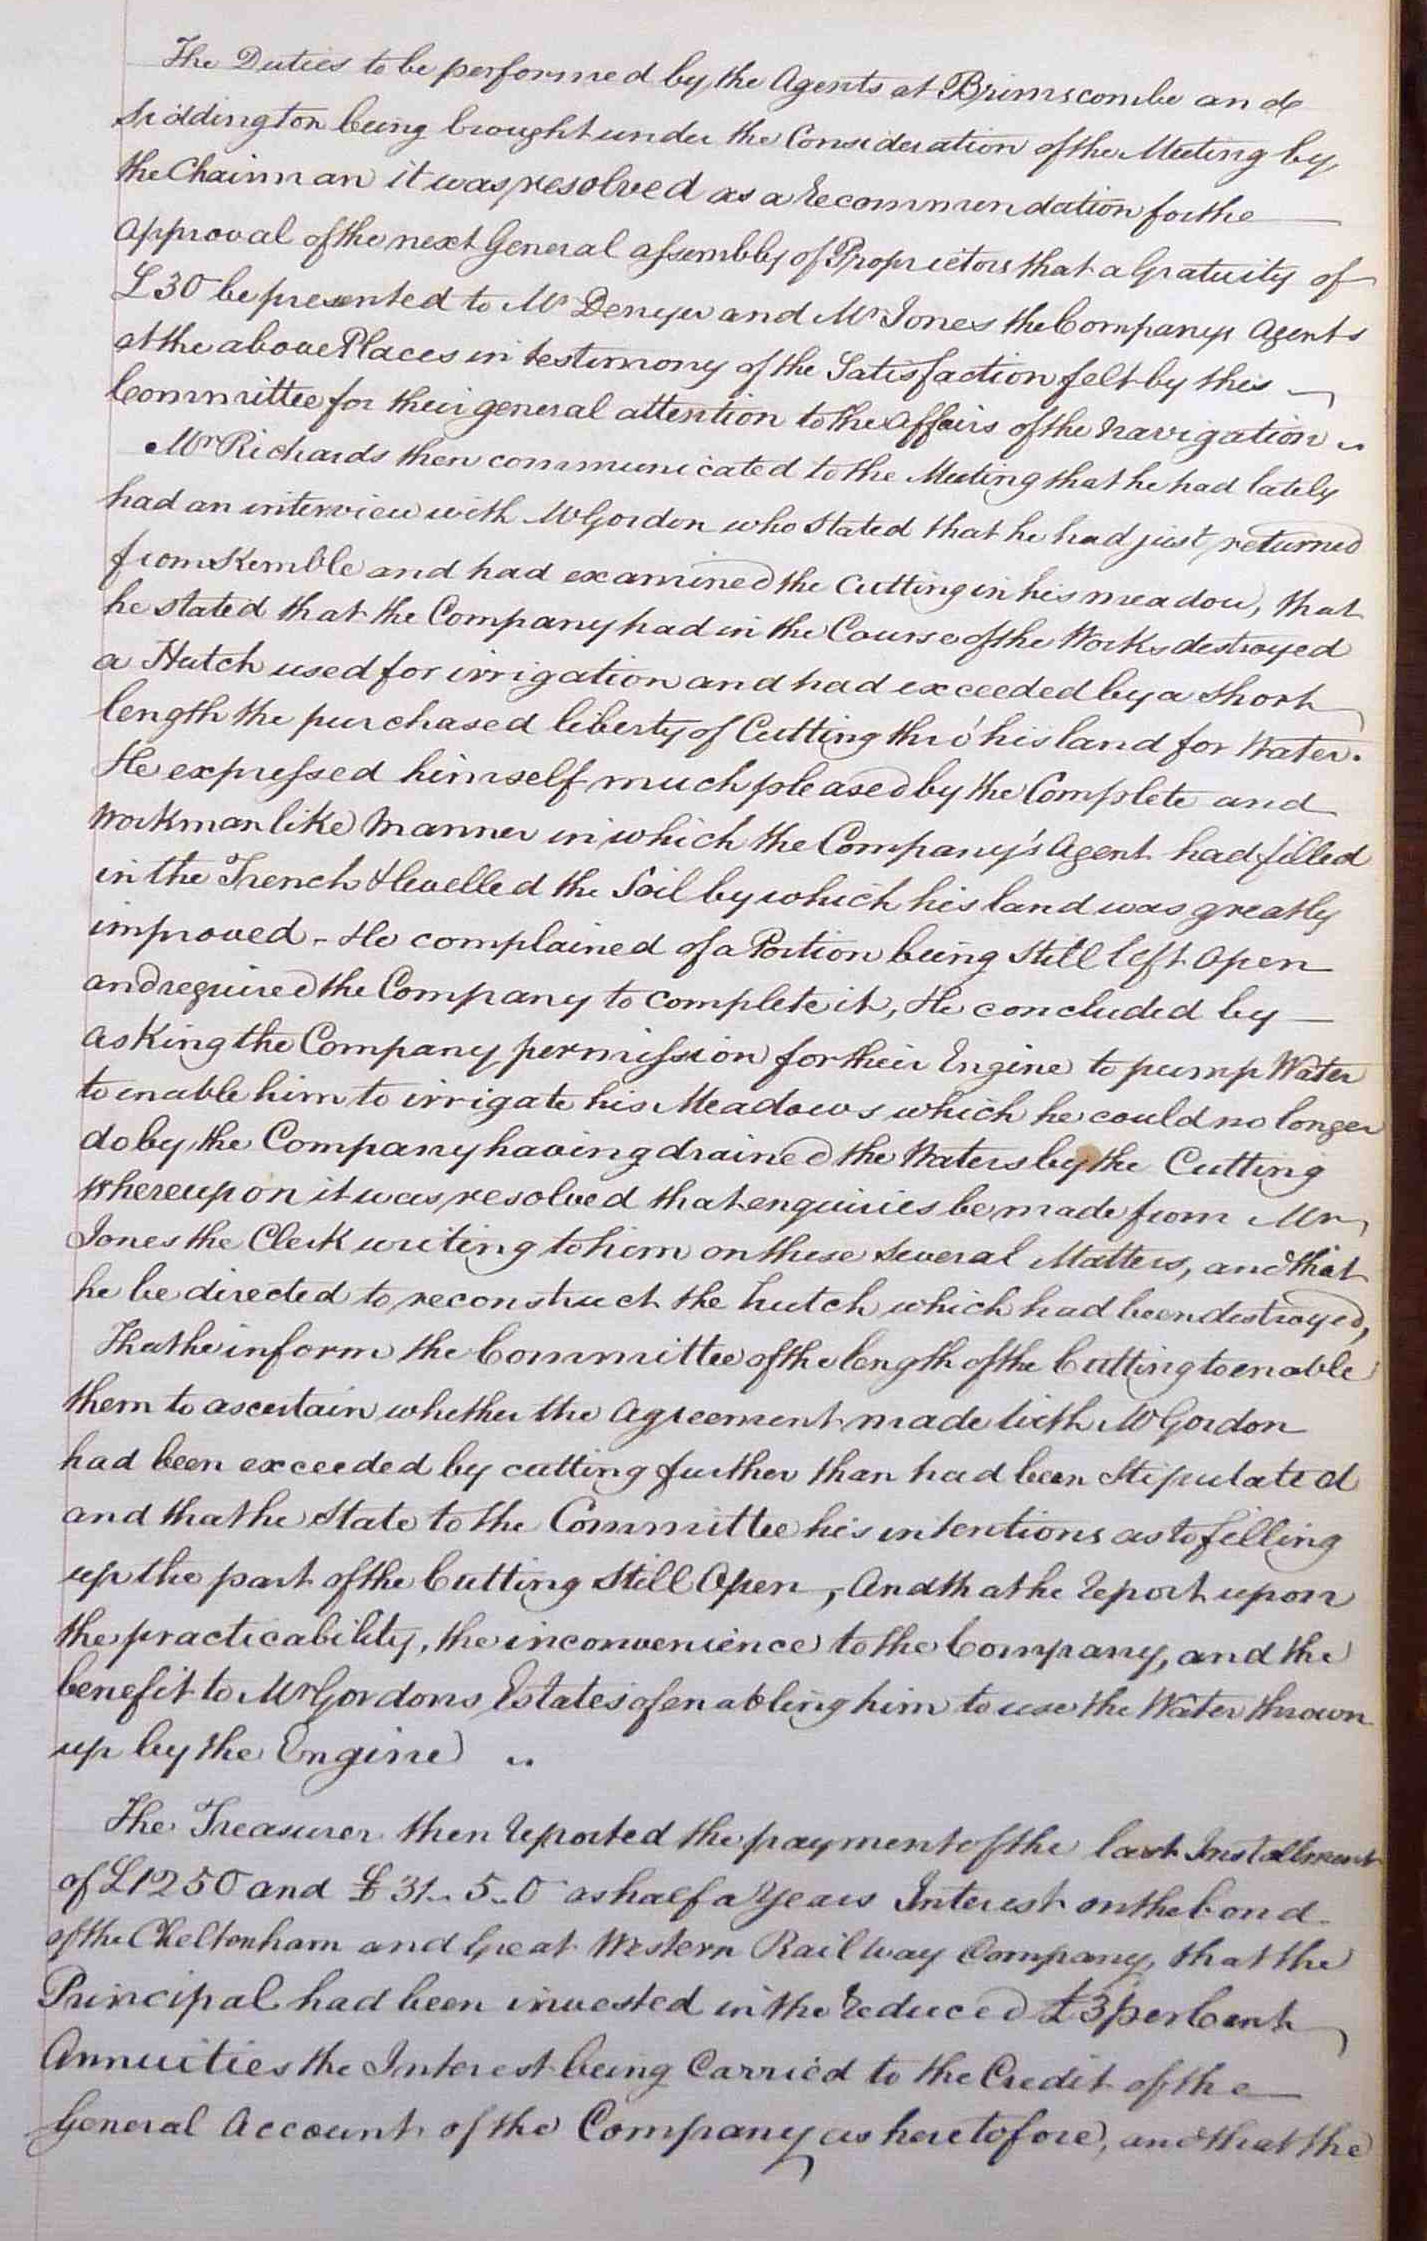 The Duties to be performed by the Agents at Brimscombe and
Siddington being brought under the Consideration of the Meeting by
the Chairman it was resolved as a recommendation for the
approval of the next General Assembly of Proprietors that a Gratuity of
£30 be presented to Mr Denyer and Mr Jones the Companys Agents
at the above Places in testimony of the Satisfaction felt by this
Committee for their general attention to the affairs of the Navigation
Mr Richards then communicated to the Meeting that he had lately
had an interview with Mr Gordon who stated that he had just returned
from Kemble and had examined the Cutting in his meadow, that
he stated that the Company had in the Course of the Works destroyed
a Hatch used for irrigation and had exceeded by a short
length the purchased liberty of Cutting thro' his land for Water.
He expressed himself much pleased by the Complete and
Workmanlike Manner in which the Company's Agent had filled
in the Trench & levelled the Soil by which his land was greatly
improved - He complained of a Portion being Still left Open
and required the Company to complete it, He concluded by
asking the Company permission for their Engine to pump Water
to enable him to irrigate his Meadows which he could no longer
do by the Company having drained the Waters by the Cutting
Whereupon it was resolved that enquiries be made from Mr
Jones the Clerk writing to him on these Several Matters, and that
he be directed to reconstruct the hutch which had been destroyed,
That he inform the Committee of the length of the Cutting to enable
them to ascertain whether the Agreement made with Mr Gordon
had been exceeded by cutting further than had been Stipulated
and that he State to the Committee his intentions as to filling
up the part of the Cutting Still Open, And that he report upon
the practicability, the inconvenience to the Company, and the
benefit to Mr Gordons Estates of enabling him to use the Water thrown
up by the Engine
The Treasurer then reported the payment of the last Installment
of £1250 and £31..5..0 as half a Years Interest on the bond
of the Cheltenham and Great Western Railway Company, that the
Principal had been invested in the reduced £3 per Cent
Annuities the Interest being Carried to the Credit of the
General Account of the Company as heretofore, and that the